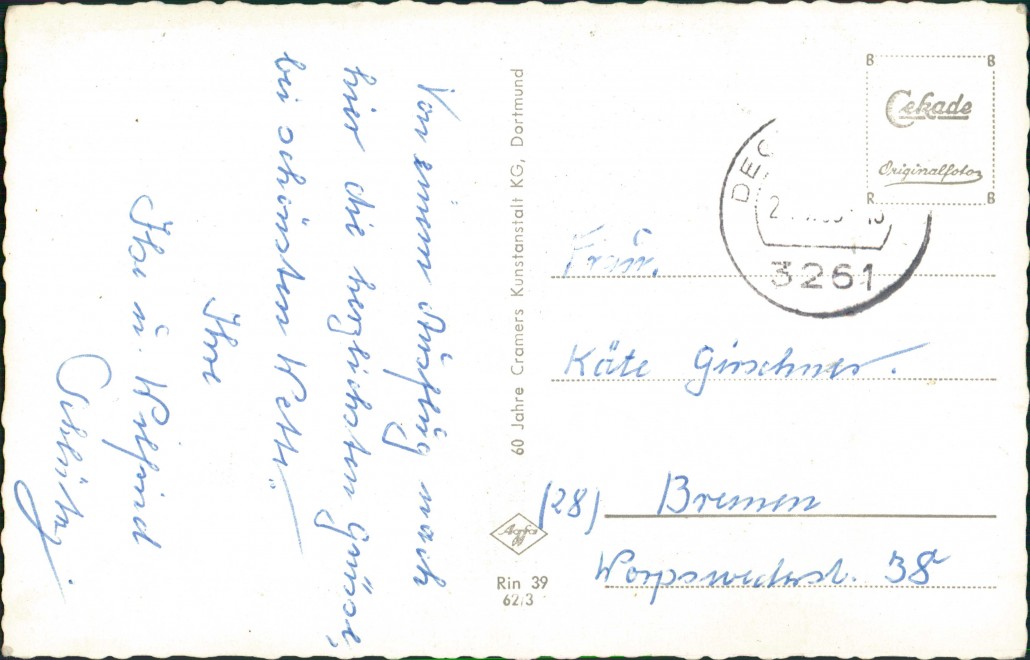 Von einem Ausflug nach
hier die herzlichsten Grüsse,
bei schönsten Wett..
Ihre
Ilse u. Wilfried
60 Jahre Cramers Kunstanstalt KG, Dortmund
Agfa
Rin 39
62/3
B B
Cekade
Originalfoto
R B
DEC
3261
Frau.
Käte Girschner.
(28) Bremen
Worpswederst. 38